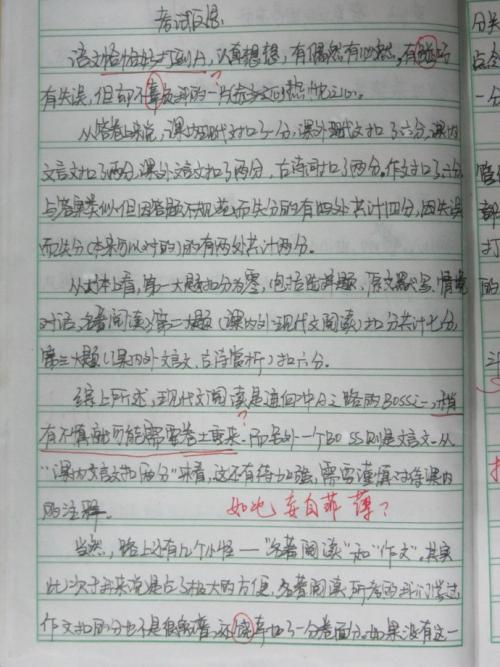 考试反思
语文恰恰好打到A,认真想想,有偶然有必然。有
有失误,但却不
从答卷上来说,课内现代文扣了一分,课外现代文扣了六分,课内
文言文扣了两分,课外文言文扣了两分,古诗词扣了两分。作文扣了六分,
与答案类似但因答题不规范而失分的有四处共计四分,因失误
而失分(本来可以对的)的有两处共计两分。
从文本上看,第一大题扣分为零,包括选择题、原文默写、情境
对话、名著阅读。第二大题(课内外现代文阅读)扣分共计七分,
第三大题(课内外文言文、古诗赏析)扣六分。
综上所述,现代文阅读是通向中A之路的BOSS之一,稍
有不慎就可能需要卷土重来。而另外一个BOSS则是文言文。从
“课内文言文扣两分”来看,这还有待加强,需要谨慎对待课内
的注释。
如此妄自菲薄?
当然,路上还有几个小怪——“名著阅读”和“作文”。其实
此次于我来说是占了极大的方便,名著阅读所考的我们考过
作文扣的分也不是很离谱,还扣了一分卷面分。如果没有这一
分
点
一分
的